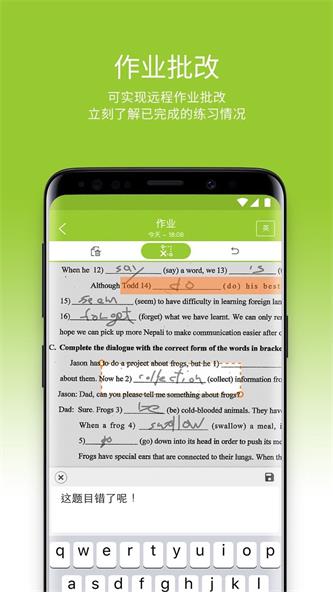 作业批改
可实现远程作业批改
立刻了解已完成的练习情况
作业
今天 - 18:08
英
When he 12) say (say) a word, we 13) 's
Although Todd 14) do (do) his best
15) seem (seem) to have difficulty in learning foreign lan
16) forget (forget) what we have learnt. We can only rem
hope we can pick up more Nepali to make communication easier after c
C. Complete the dialogue with the correct form of the words in bracke
Jason has to do a project about frogs, but he 1)
about them. Now he 2) collection (collect) information fro
Jason: Dad, can you please tell me something about frogs?
Dad: Sure. Frogs 3) be (be) cold-blooded animals. They hav
When a frog 4) swallow (swallow) a meal, i
5) go (go) down into its head in order to push its mo
Frogs have special ears that are connected to their lungs. When th
这题目错了呢！
q w e r t y u i o p
a s d f g h j k l